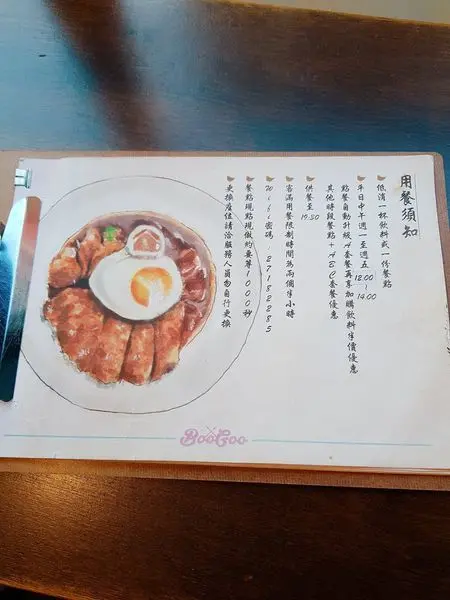 用餐須知
低消一杯飲料或一份餐點
平日中午週一至週五12:00~14:00
點餐自動升級A套餐再享加購飲料半價優惠
其他時段餐點+ABC套餐優惠
供餐至19:30
客滿用餐限制時間為兩個半小時
Wifi密碼:27182285
餐點現點現做約要等1000秒
更換座位請洽服務人員勿自行更換
BooGoo